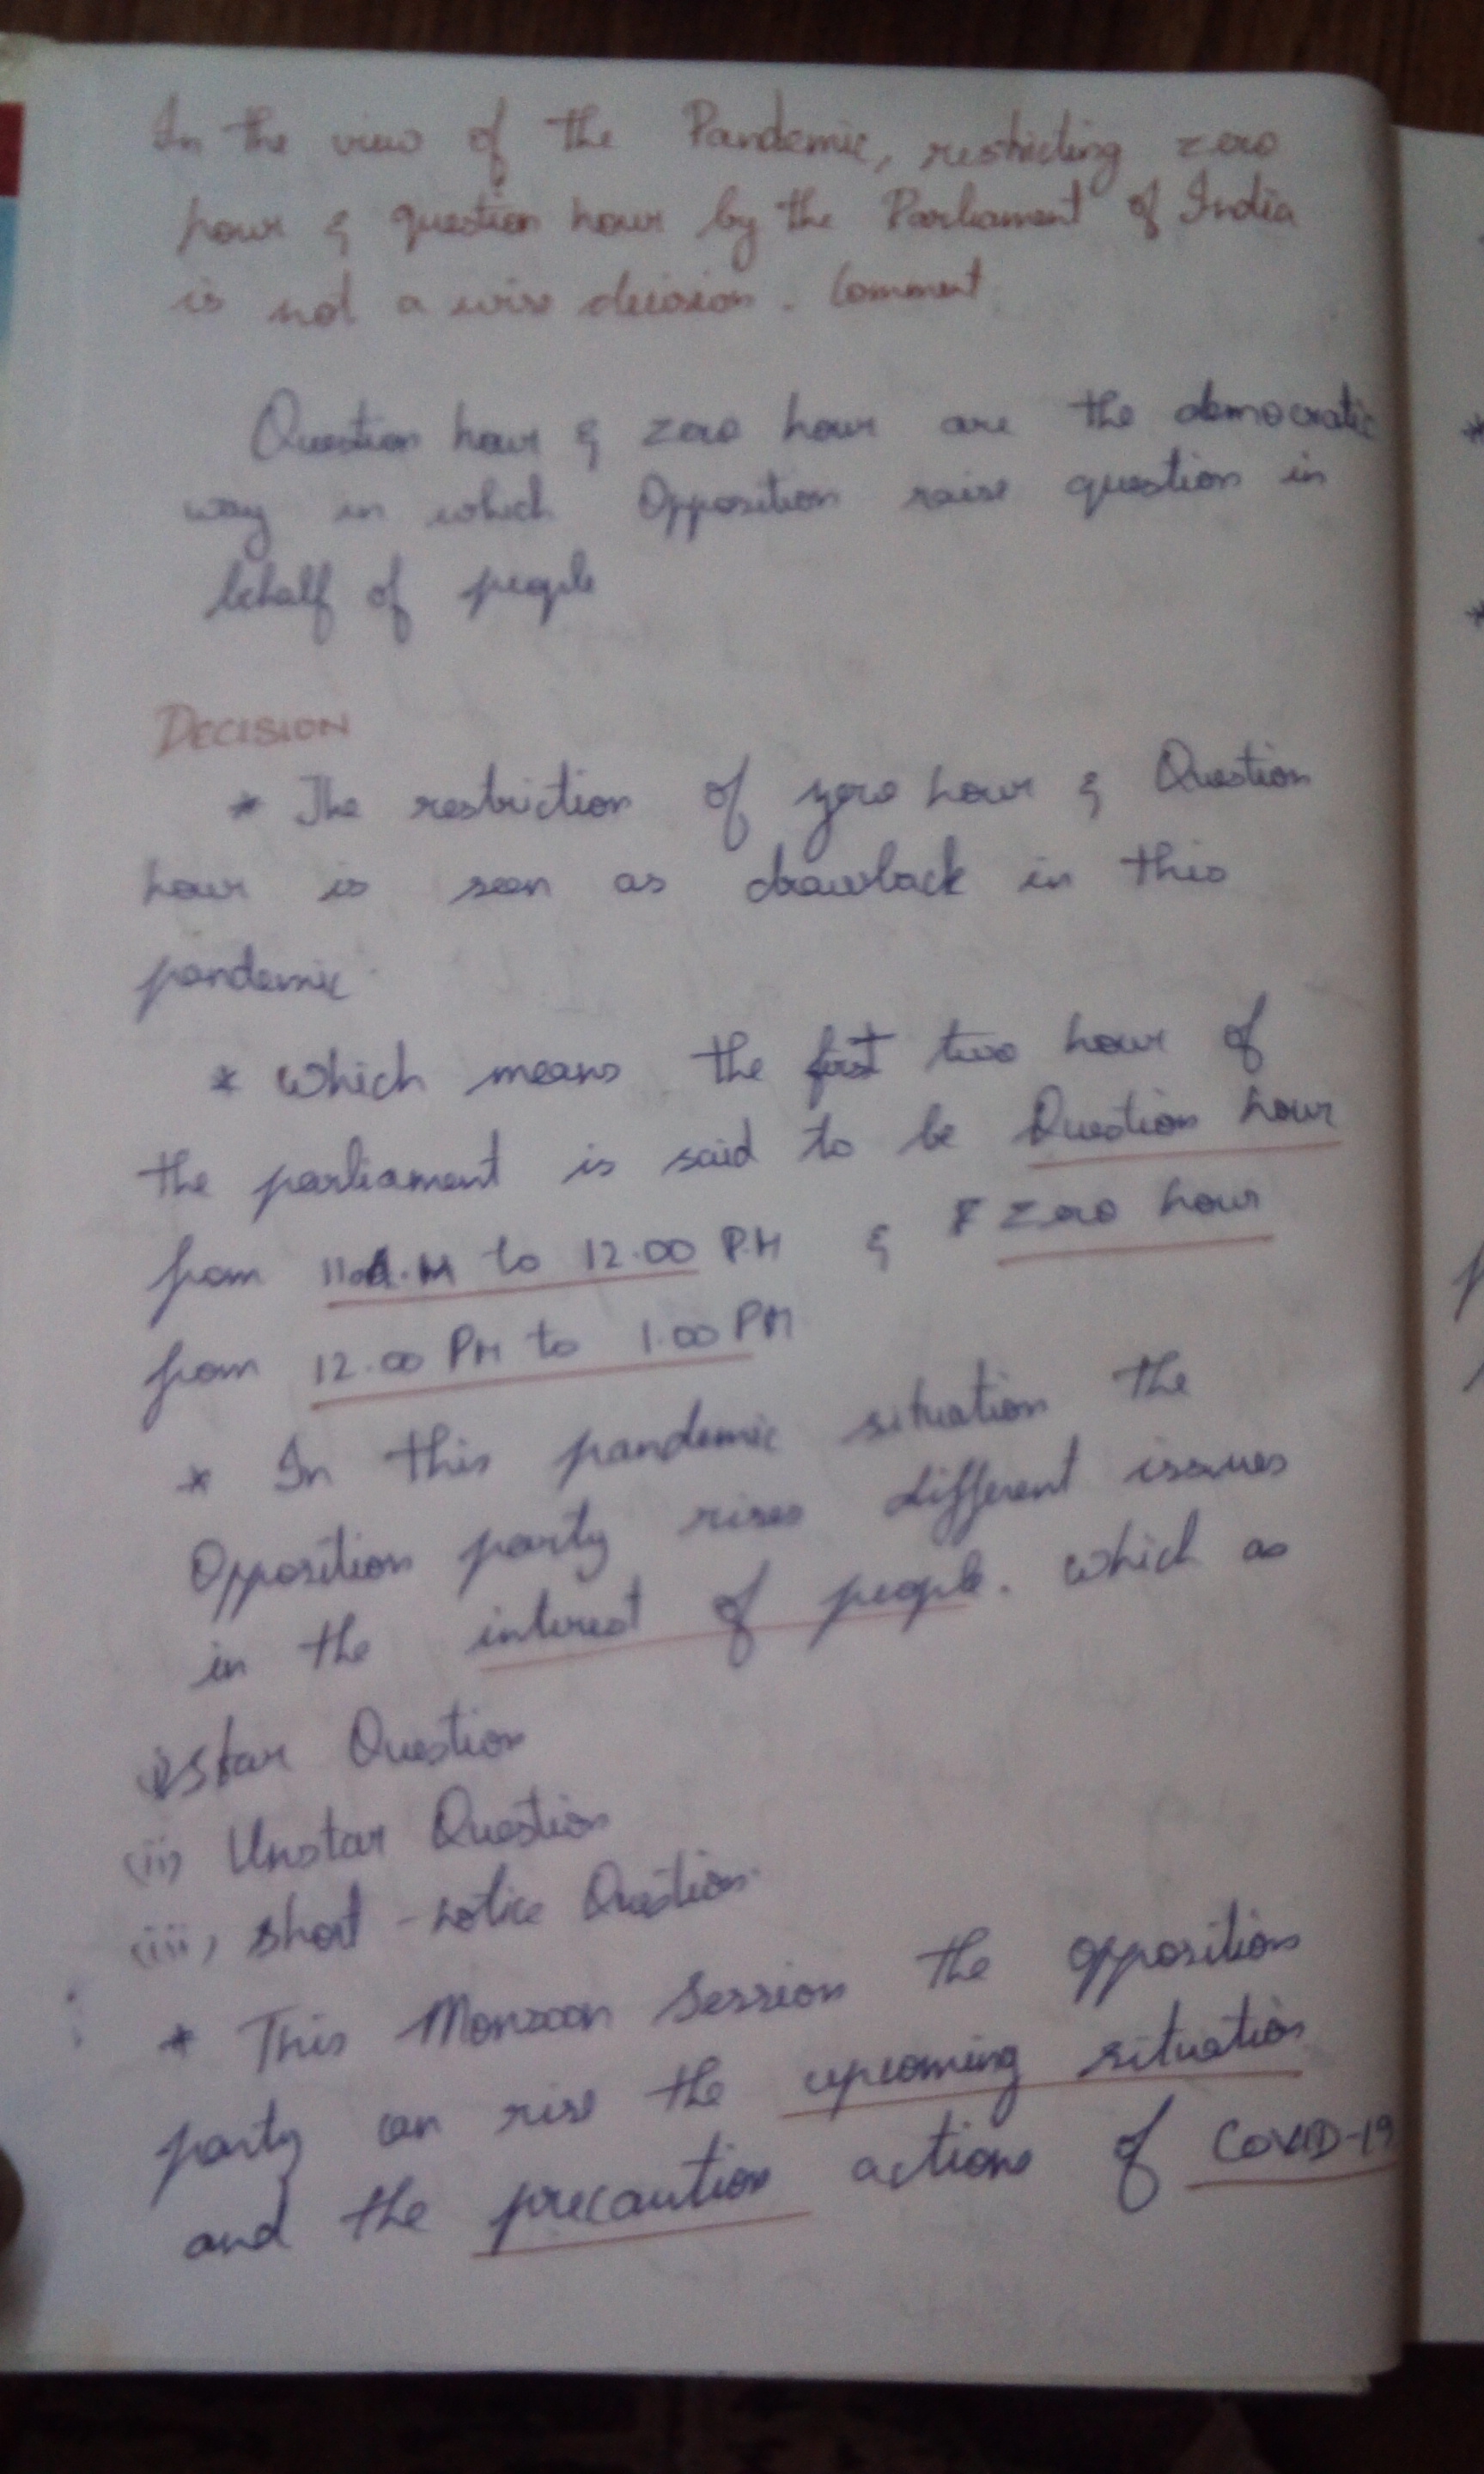 In the view of the Pandemic, restricting zero
hour & question hour by the Parliament of India
is not a wise decision. Comment
Question hour & zero hour are the democratic
way in which Opposition raise question in
behalf of people
DECISION
* The restriction of zero hour & Question
hour is seen as drawback in this
pandemic
* which means the first two hour of
the parliament is said to be Question hour
from 11 A.M to 12.00 P.M & zero hour
from 12.00 PM to 1.00 PM
* In this pandemic situation the
Opposition party rises different issues
in the interest of people. which as
i) Star Question
(ii) Unstar Question
(iii) Short-notice Question.
* This Monsoon Session the opposition
party can rise the upcoming situation
and the precaution actions of COVID-19